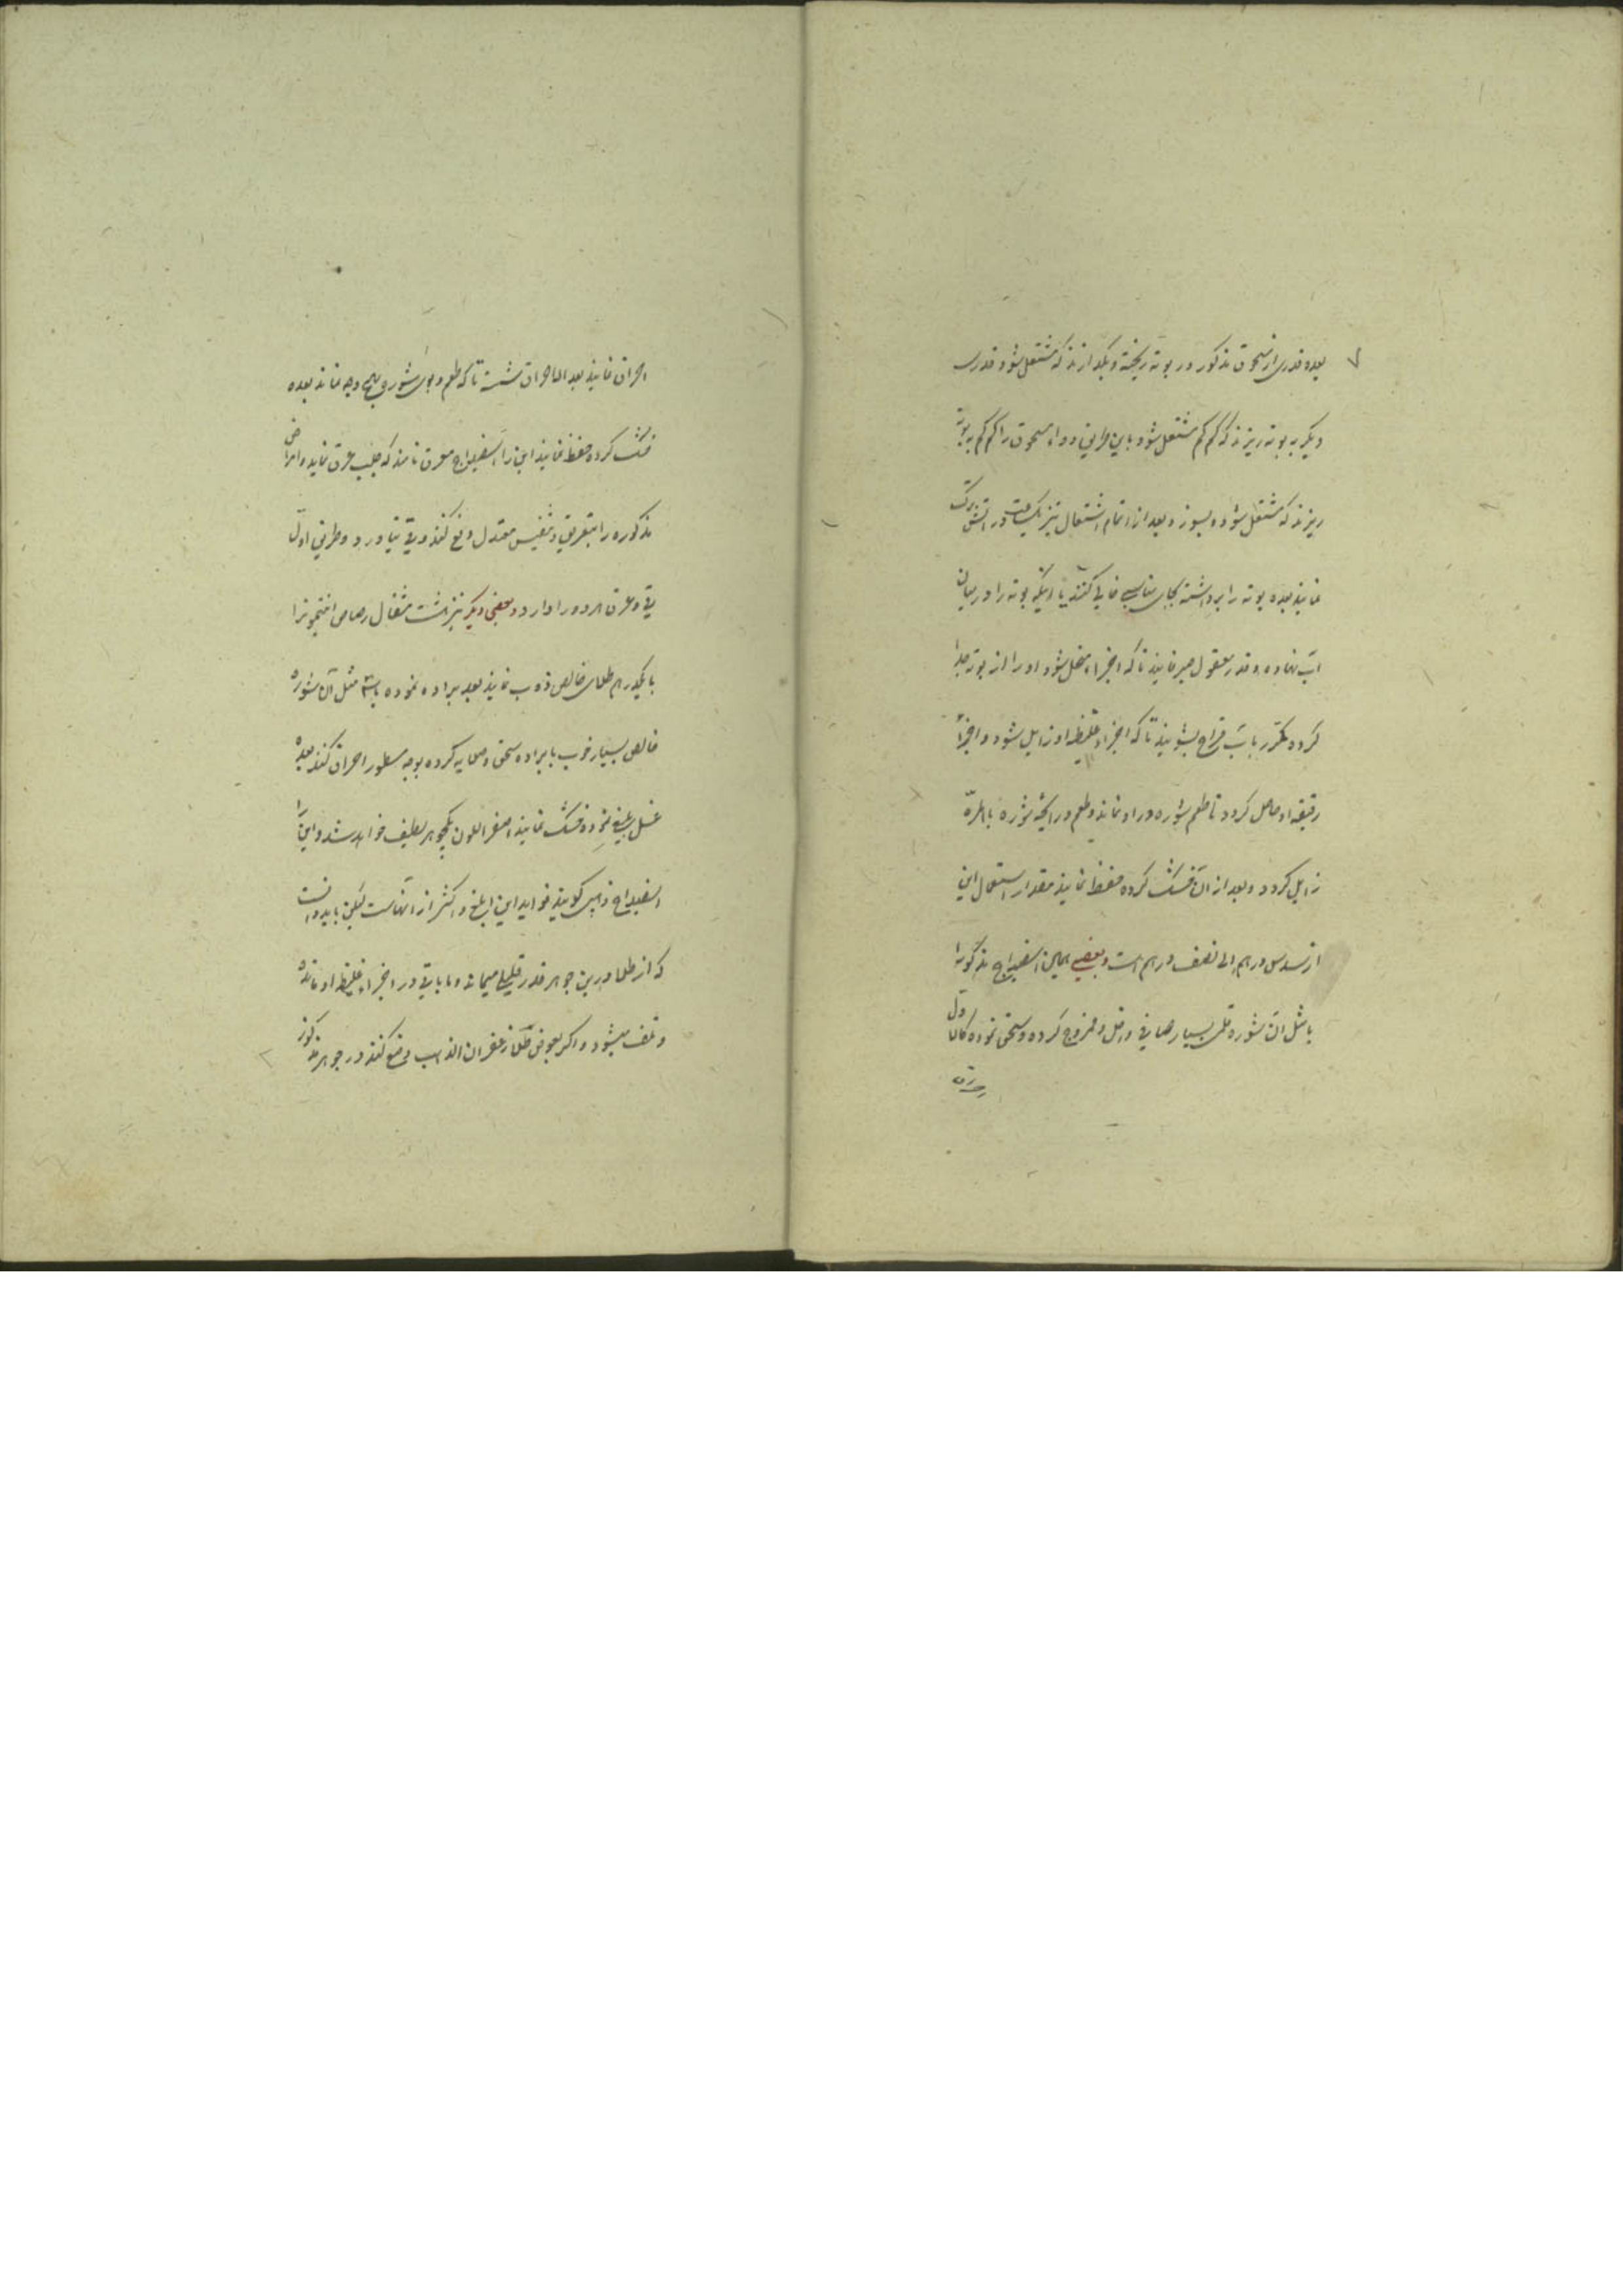 ۷
بعده قدری از مسحوق مذکور در بوته ریخته و بگذارند که مشتعل شود قدری
دیگر به بوته ریزند که کم کم مشتعل شود باین طریق دواء مسحوق را کم کم به بوته
ریزند که مشتعل شود و بسوزد بعد از اتمام اشتعال نیز یکساعت در آتش ترک
نمایند بعده بوته را برداشته بجای مناسبی خالی کنند یا اینکه بوته را در میان
آب نهاده و قدر معقول صبر نمایند تا که اجزاء منحل شود او را از بوته جدا
کرده مکرر بآب قراح بشویند تا که اجزاء غلیظه او زایل شود و اجزاء
رقیقه او حاصل کردد تا طعم شوره در او نماند و طعم و رایحه شوره بالمره
زایل کردد و بعد از آن خشک کرده حفظ نمایند مقدار استعمال این
از سدس درهم الی نصف درهم است و بعضی همین اسفیداج مذکور را
با مثل آن شوره قلمی بسیار صافی داخل و ممزوج کرده و سحق نموده کالاول
احراق نمایند بعد الاحراق شسته تا که طعم و بوی شوره بهیچ وجه نماند بعده
خشک کرده حفظ نمایند این را اسفیداج معرق نامند که جلب عرق نماید و امراض
مذکوره را بتعریق و تنفیس معتدل دفع کند و قی نیاورد و طریق اول
قی و عرق هر دو را دارد و بعضی دیگر نیز هشت مثقال رصاص انتیمونرا
با یکدرهم طلای خالص ذوب نمایند بعد براده نموده با سه مثل آن شوره
خالص بسیار خوب با براده سحق و صلایه کرده بوجه مسطور احراق کنند بعده
غسل بلیغ نموده خشک نمایند اصفر اللون یکجوهر لطیف خواهد شد و این را
اسفیداج ذهبی کویند فواید این ابلغ و اکثر از آنهاست لیکن باید دانست
که از طلا درین جوهر قدر قلیلی میماند و ما باقی در اجزاء غلیظه او مانده
و تلف میشود و اکر بعوض طلا زعفران الذهب وضع کنند در جوهر مذکور